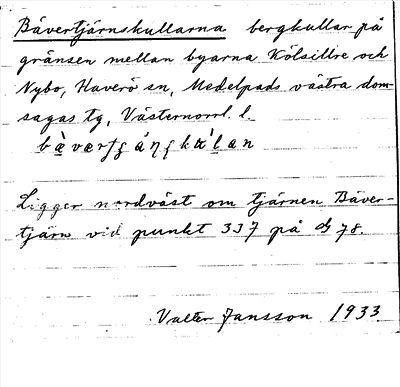 Bävertjärnskullarna bergkullar på
gränsen mellan byarna Kölsillre och
Nybo, Haverö sn, Medelpads västra dom-
sagas tg, Västernorrl. l.
Ligger nordväst om tjärnen Bäver-
tjärn vid punkt 337 på 78.
Valter Jansson 1933.